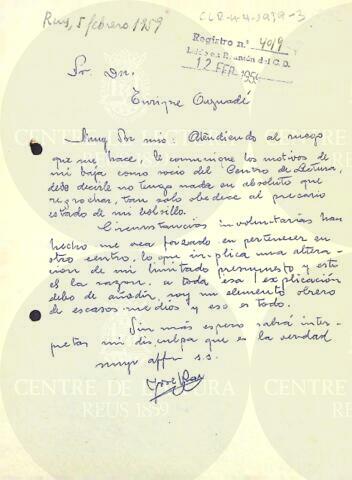 Reus, 5 febrero 1959
Registro n.º 409
12 FEB 1959
Sr. Dn.
Enrique Aguadé
Muy Sr mio: Atendiendo al ruego
que me hace, le comunique los motivos de
mi baja como socio del Centro de Lectura,
debo decirle no tengo nada en absoluto que
reprochar, tan solo obedece al precario
estado de mi bolsillo.
Circunstancias involuntarias han
hecho me vea forzado en pertenecer en
otro sentro, lo que inplica una altera-
cion de mi limitado presupuesto, y esta
es la razon. a toda esa explicación
debo de añadir, soy un elemento obrero
de escasos medios y eso es todo.
Sin más espero sabrá inter-
pretar mi disculpa que es la verdad
suyo affm s.s.
José
CENTRE DE LECTURA
REUS 1859